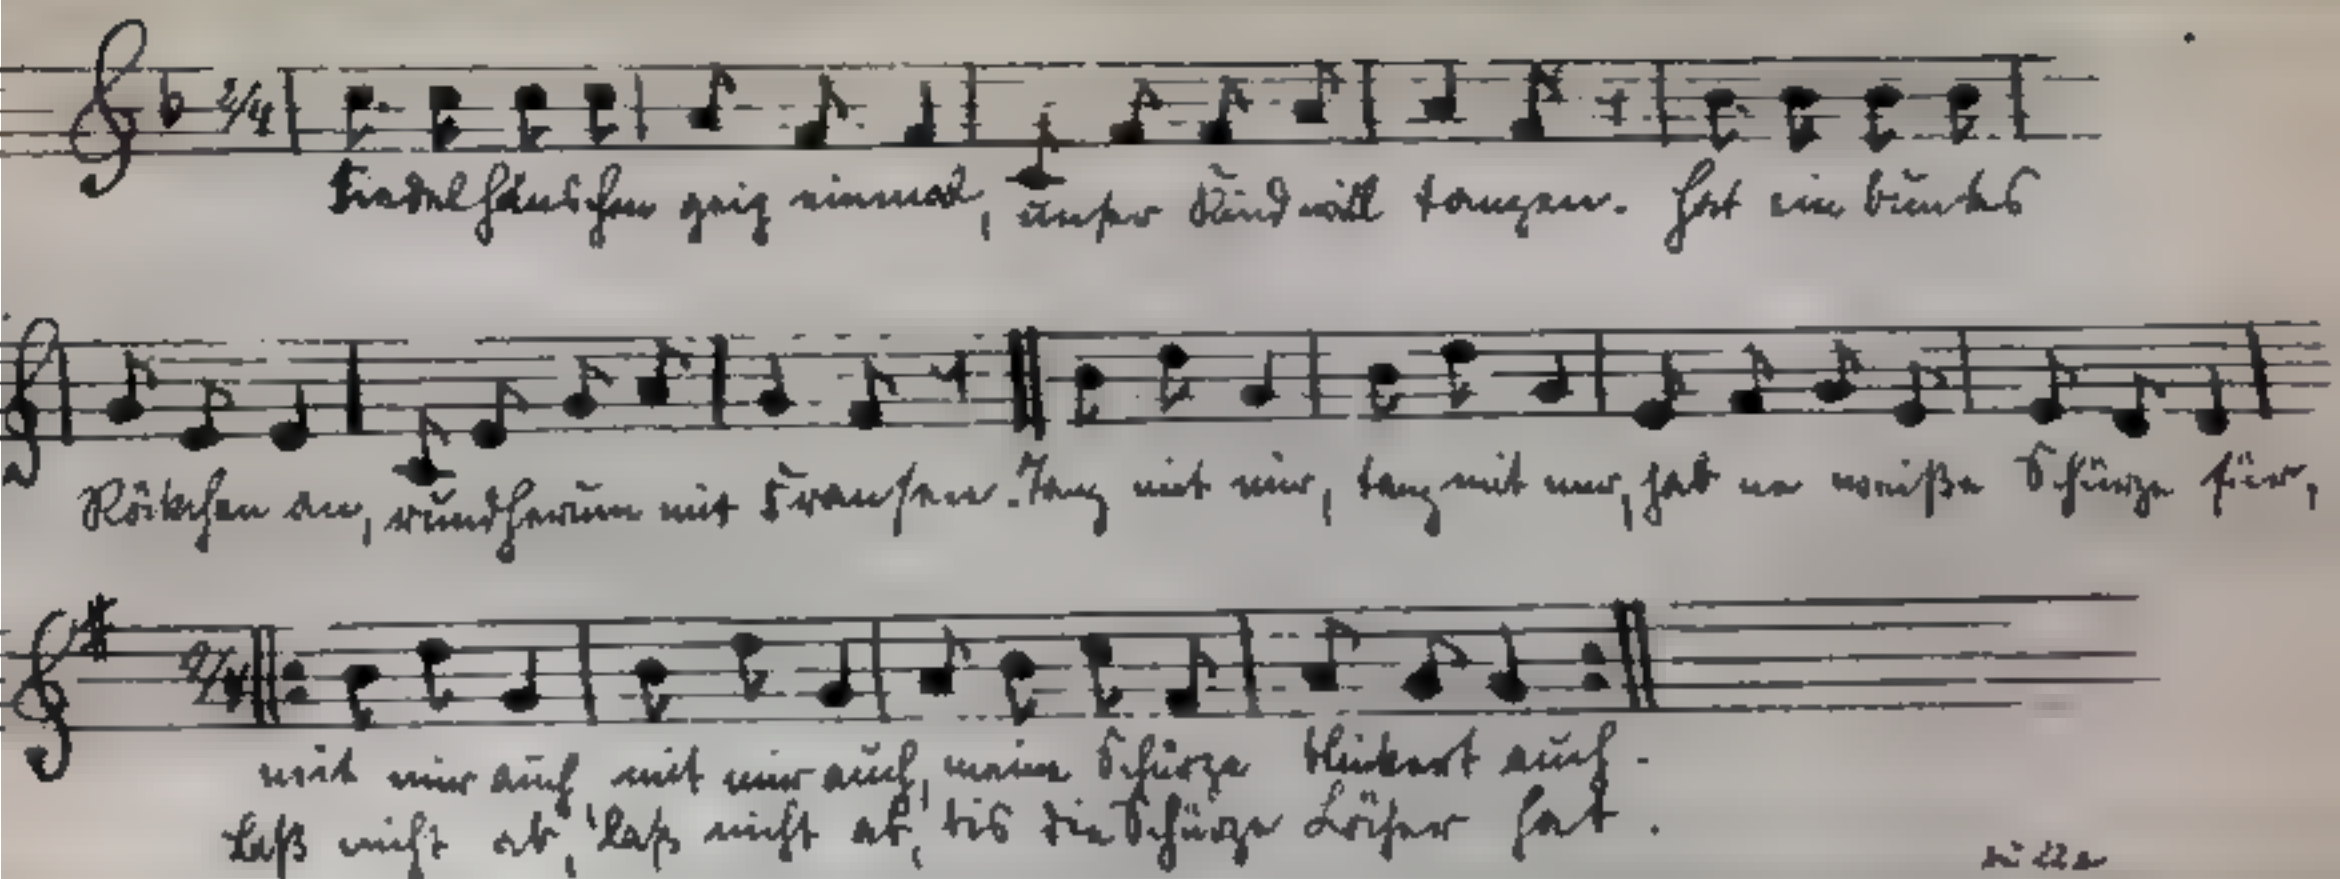 2/4
Fiedelhänschen geig einmal, unser Kind will tanzen. Hat ein buntes
Röckchen an, rundherum mit Fransen. Tanz mit mir, tanz mit mir, hab ne weiße Schürze für,
2/4
mit mir auch mit mir auch, meine Schürze auch.
Laß nicht ab, laß nicht ab, bis die Schürze Löcher hat.